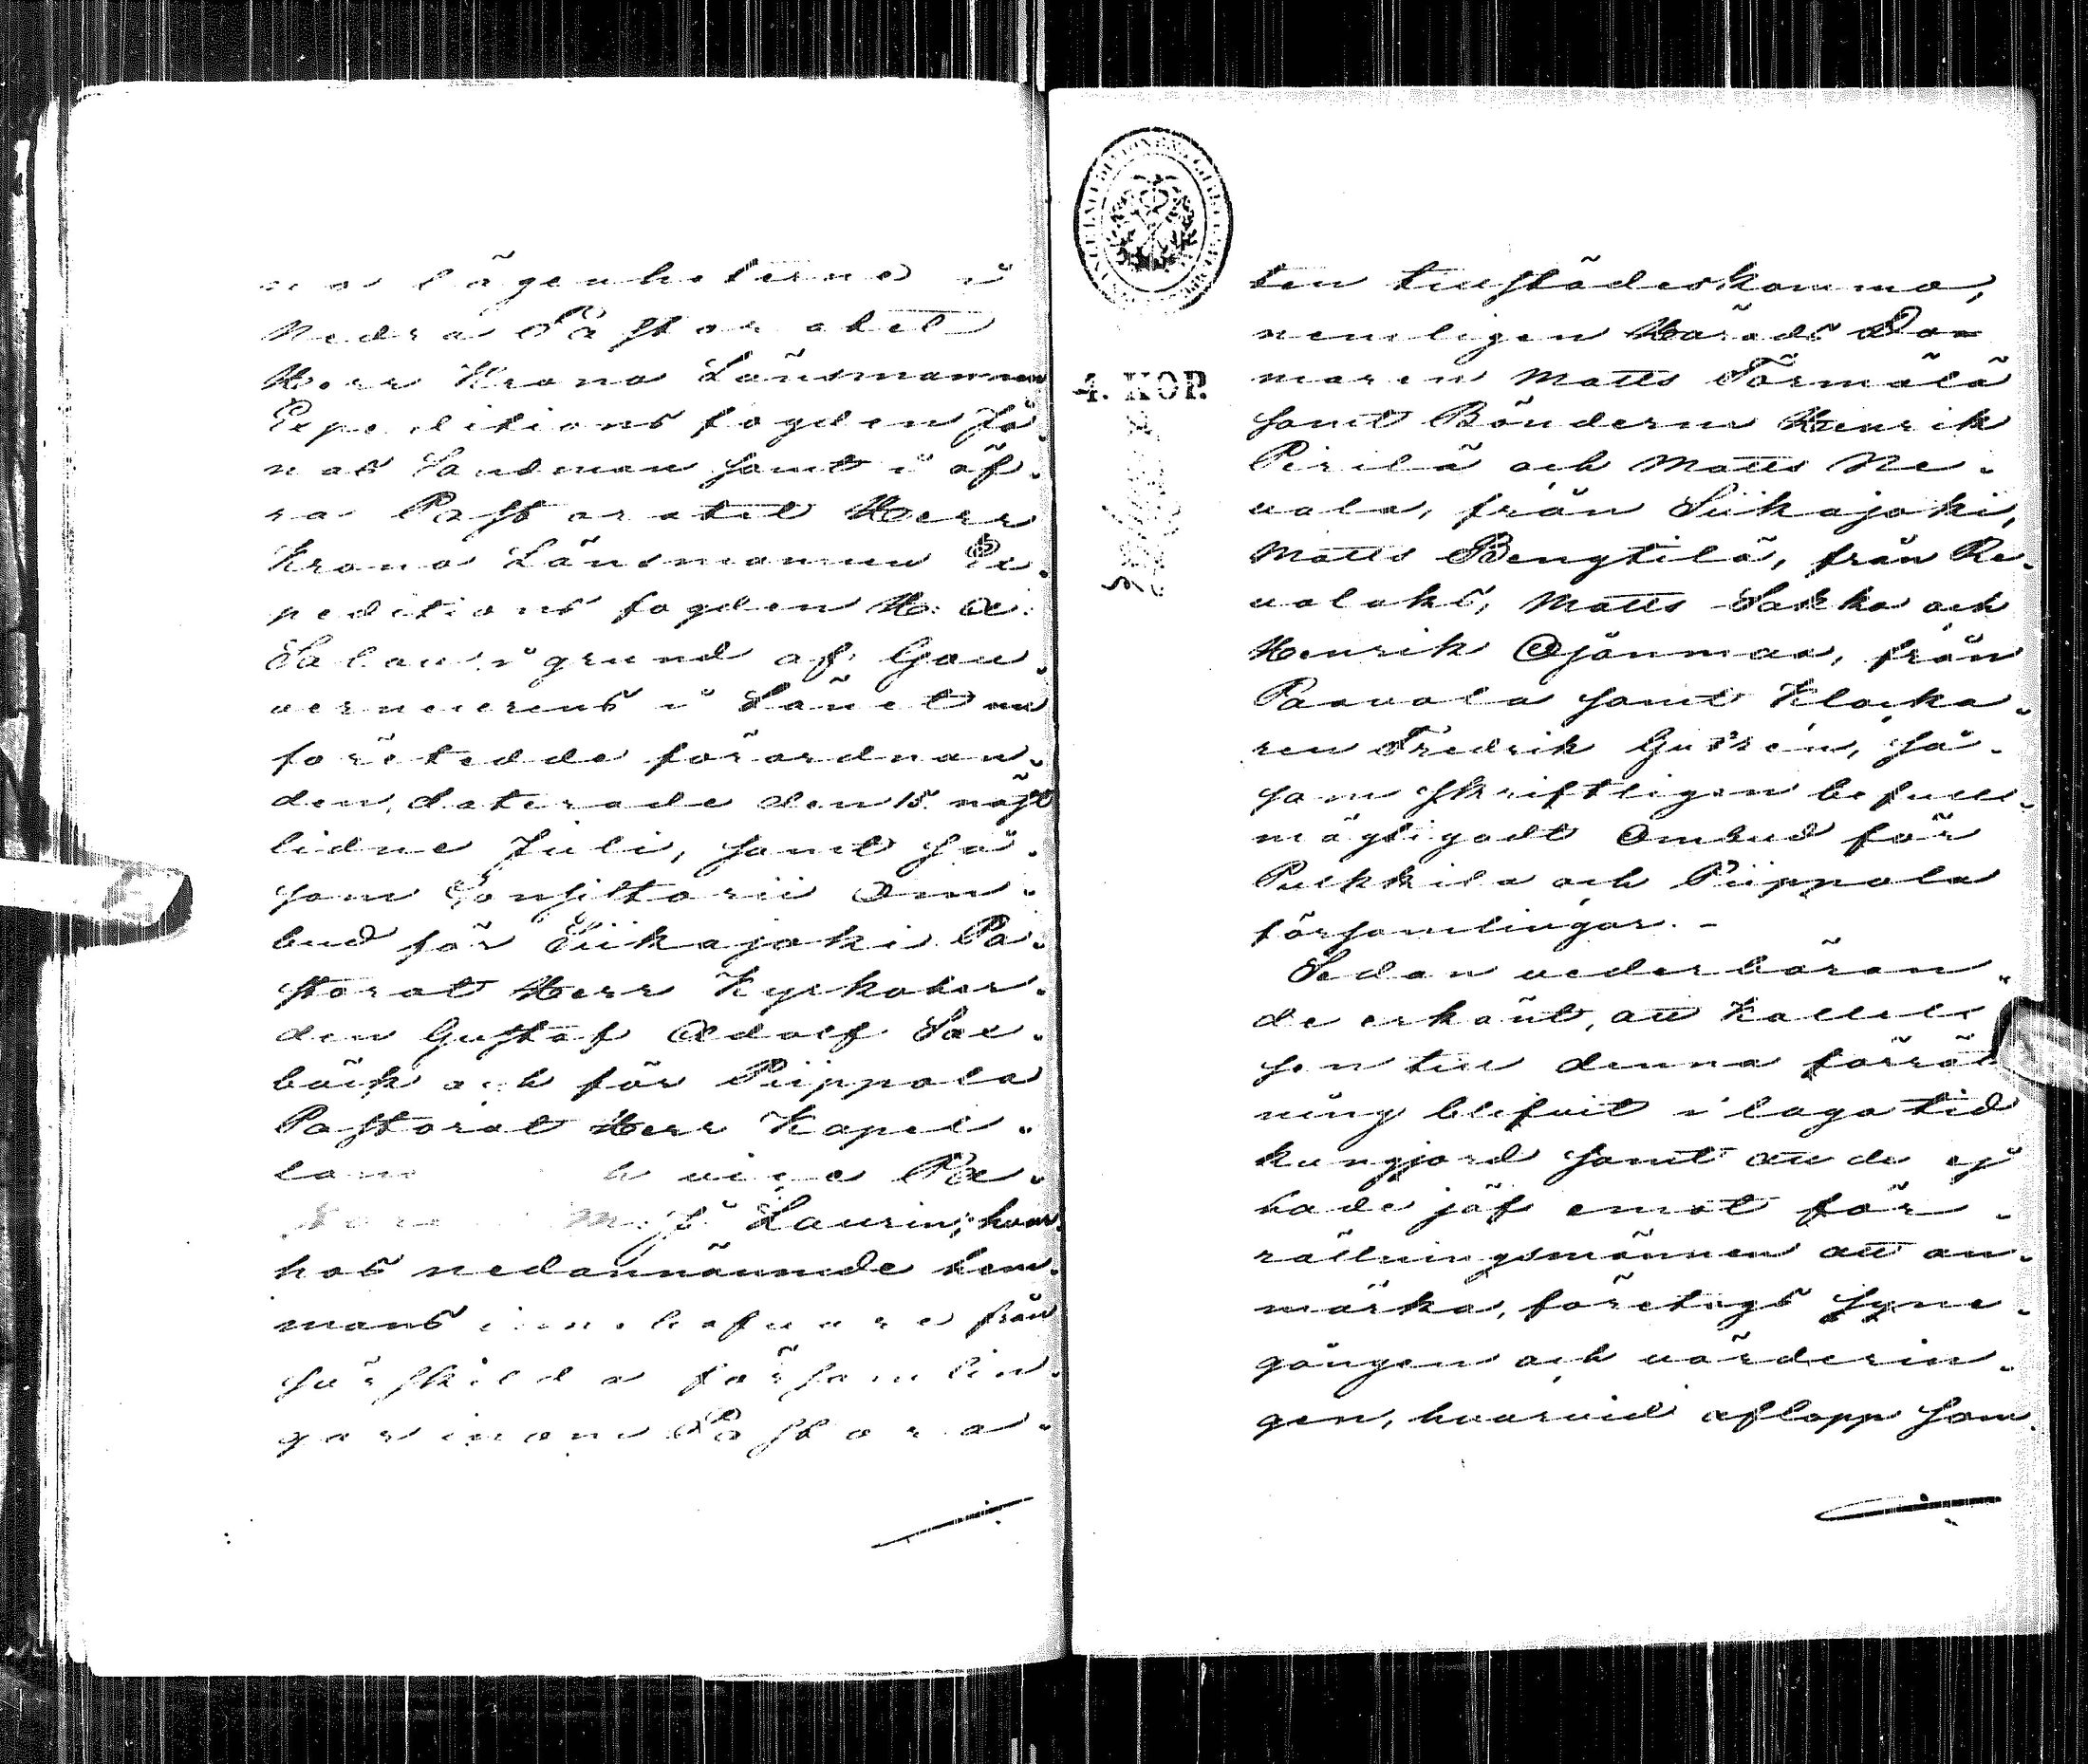 na lägenheterne i
Nedra Pastoratet
Herr Krono Länsmannen
Expeditions fogden Jo-
nas Sandman samt i öf-
ra Pastoratet Herr
Krono Länsmannen Ex-
peditions fogden H. A.
Salon i grund af Gou-
verneurens i Länet
företedde förordnan-
den, daterade den 15 näst
lidne Juli, samt så-
som Consistorii Om-
bud för Siikajoki Pa-
storat Herr Kyrkoher-
den Gustaf Adolf
bäck och för Piippola
Pastorat Herr Kapel-
lan vice Pa-
store Laurin; hvar-
hos nedannämnde hem-
mans innehafvare från
särskilda församlin-
gar inom Pastora-
ten tillstädeskommo,
nemligen Härads Do-
maren Matts Törmälä
samt Bönderne Henrik
Pirilä och Matts Ne-
vala, från Siikajoki,
Matts Bengtilä, från Re-
volaks, Matts Sarkko och
Henrik Ojanmaa, från
Paavola samt Klocka-
ren Fredrik så-
som skriftligen befull-
mägtigadt Ombud för
Pulkkila och Piippola
församlingar. -
Sedan vederböran-
de erkänt, att kallel-
sen till denna förrät
ning blifvit i laga tid
kungjord samt att de ej
hade jäf emot för-
rättningsmännen att an-
märka, företogs syne-
gången och värderin-
gen, hvarvid aflopp som
4. KOP.